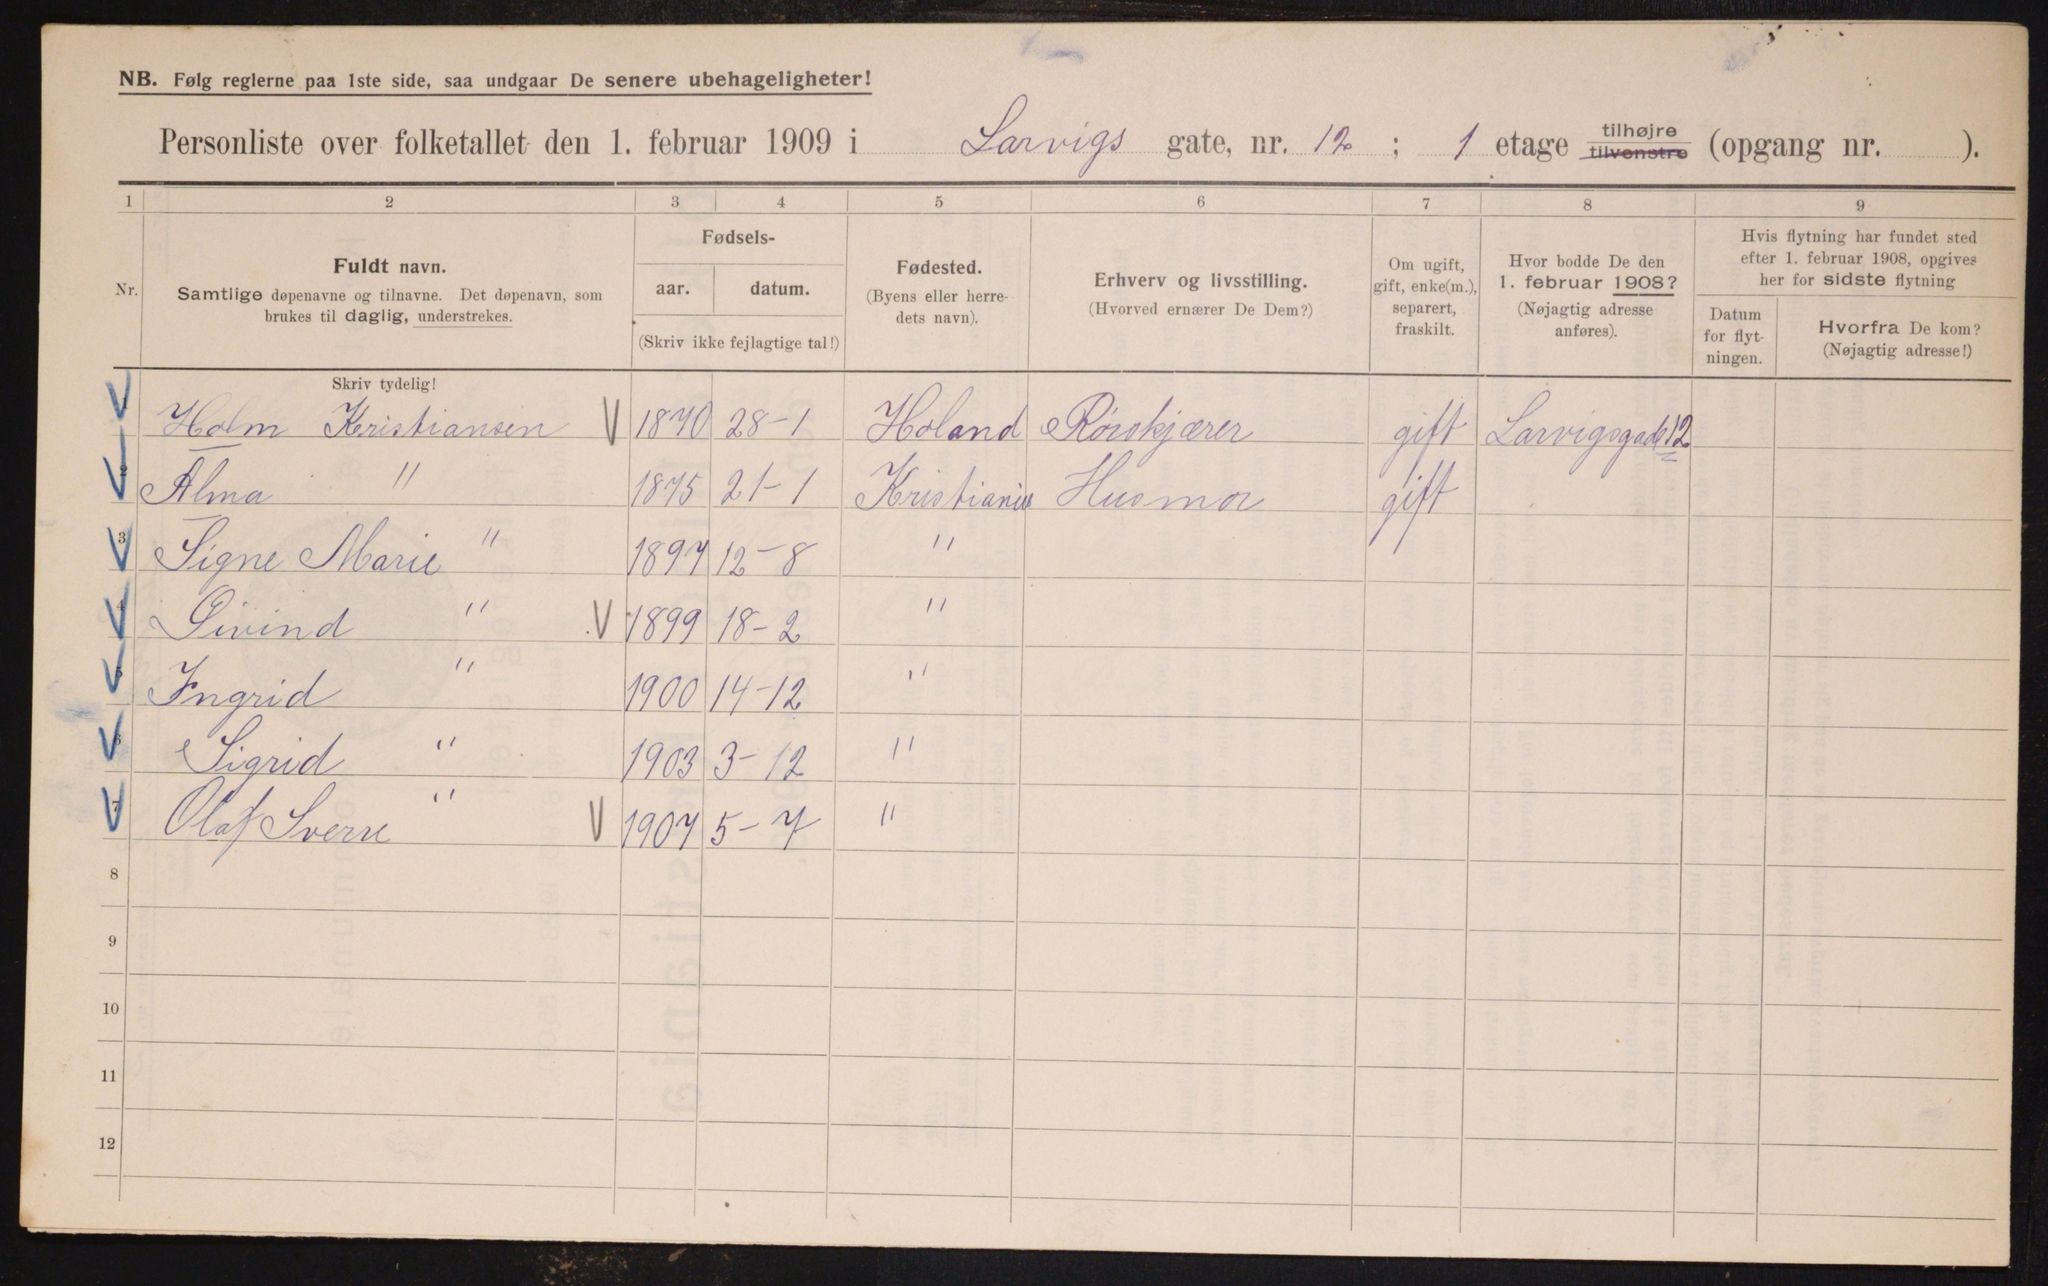 NB. Følg reglerne paa 1ste side, saa undgaar De senere ubehageligheter!
Personliste over folketallet den 1. februar 1909 i Larvigs gate, nr. 12 ; 1 etage tilhøjre tilvenstre (opgang nr. ).
1 2 3 4 5 6 7 8 9
Nr.
Fuldt navn.
Samtlige døpenavne og tilnavne. Det døpenavn, som
brukes til daglig, understrekes.
Fødsels-
aar. datum.
(Skriv ikke fejlagtige tal!)
Fødested.
(Byens eller herre-
dets navn).
Erhverv og livsstilling.
(Hvorved ernærer De Dem?)
Om ugift,
gift, enke(m.),
separert,
fraskilt.
Hvor bodde De den
1. februar 1908?
(Nøjagtig adresse
anføres).
Hvis flytning har fundet sted
efter 1. februar 1908, opgives
her for sidste flytning
Datum
for flyt-
ningen.
Hvorfra De kom?
(Nøjagtig adresse!)
Skriv tydelig!
Holm Kristiansen V 1870 28-1 Holand Rørskjærer gift Larvigsgade 12
2 Alma " 1875 21-1 Kristiania Husmor gift
3 Signe Marie " 1897 12-8 "
4 Øivind " V 1899 18-2 "
5 Ingrid " 1900 14-12 "
6 Sigrid " 1903 3-12 "
7 Olaf Sverre " V 1907 5-7 "
8
9
10
11
12